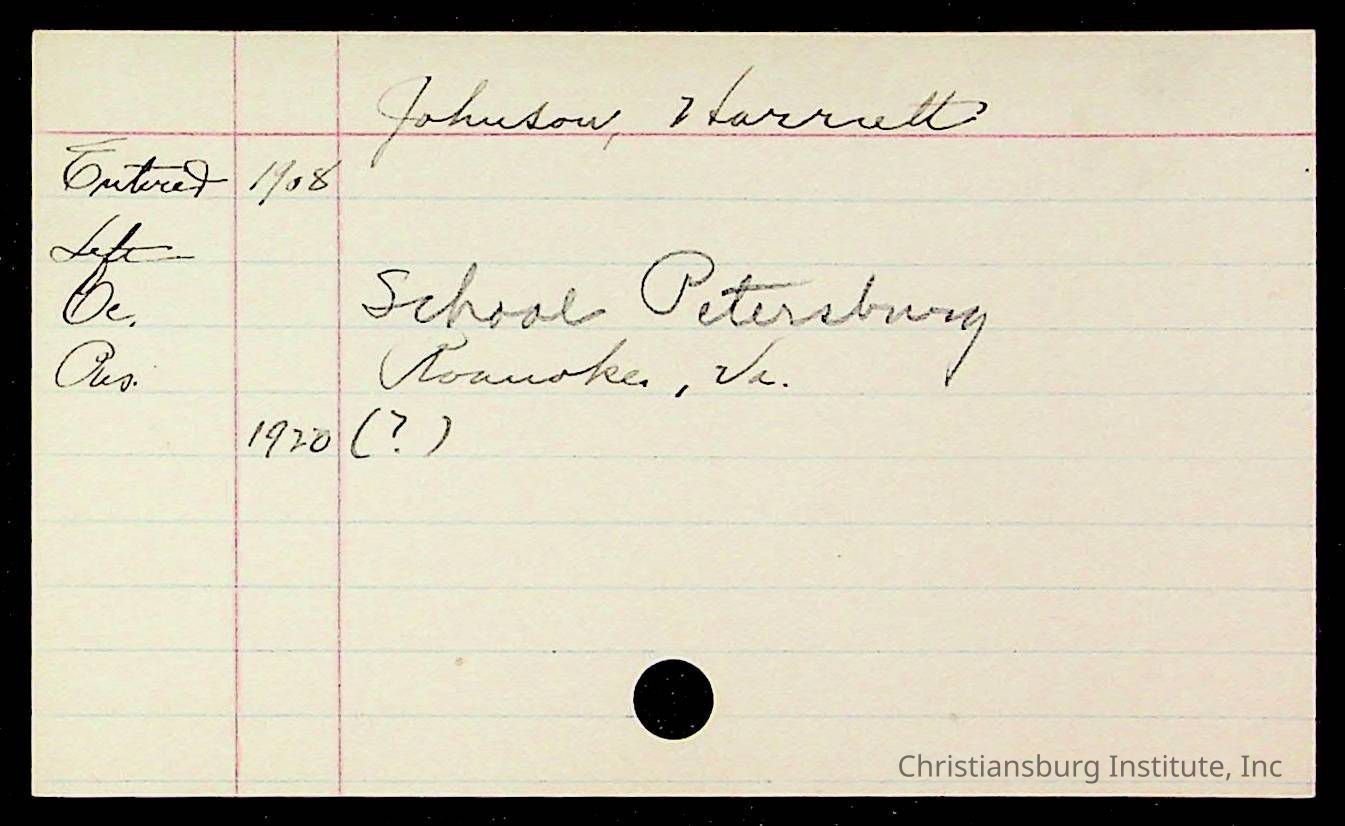 Johnson, Harriett
Entered 1908
Left
Oc. School Petersburg
Res. Roanoke, Va.
1920 (?)
Christiansburg Institute, Inc